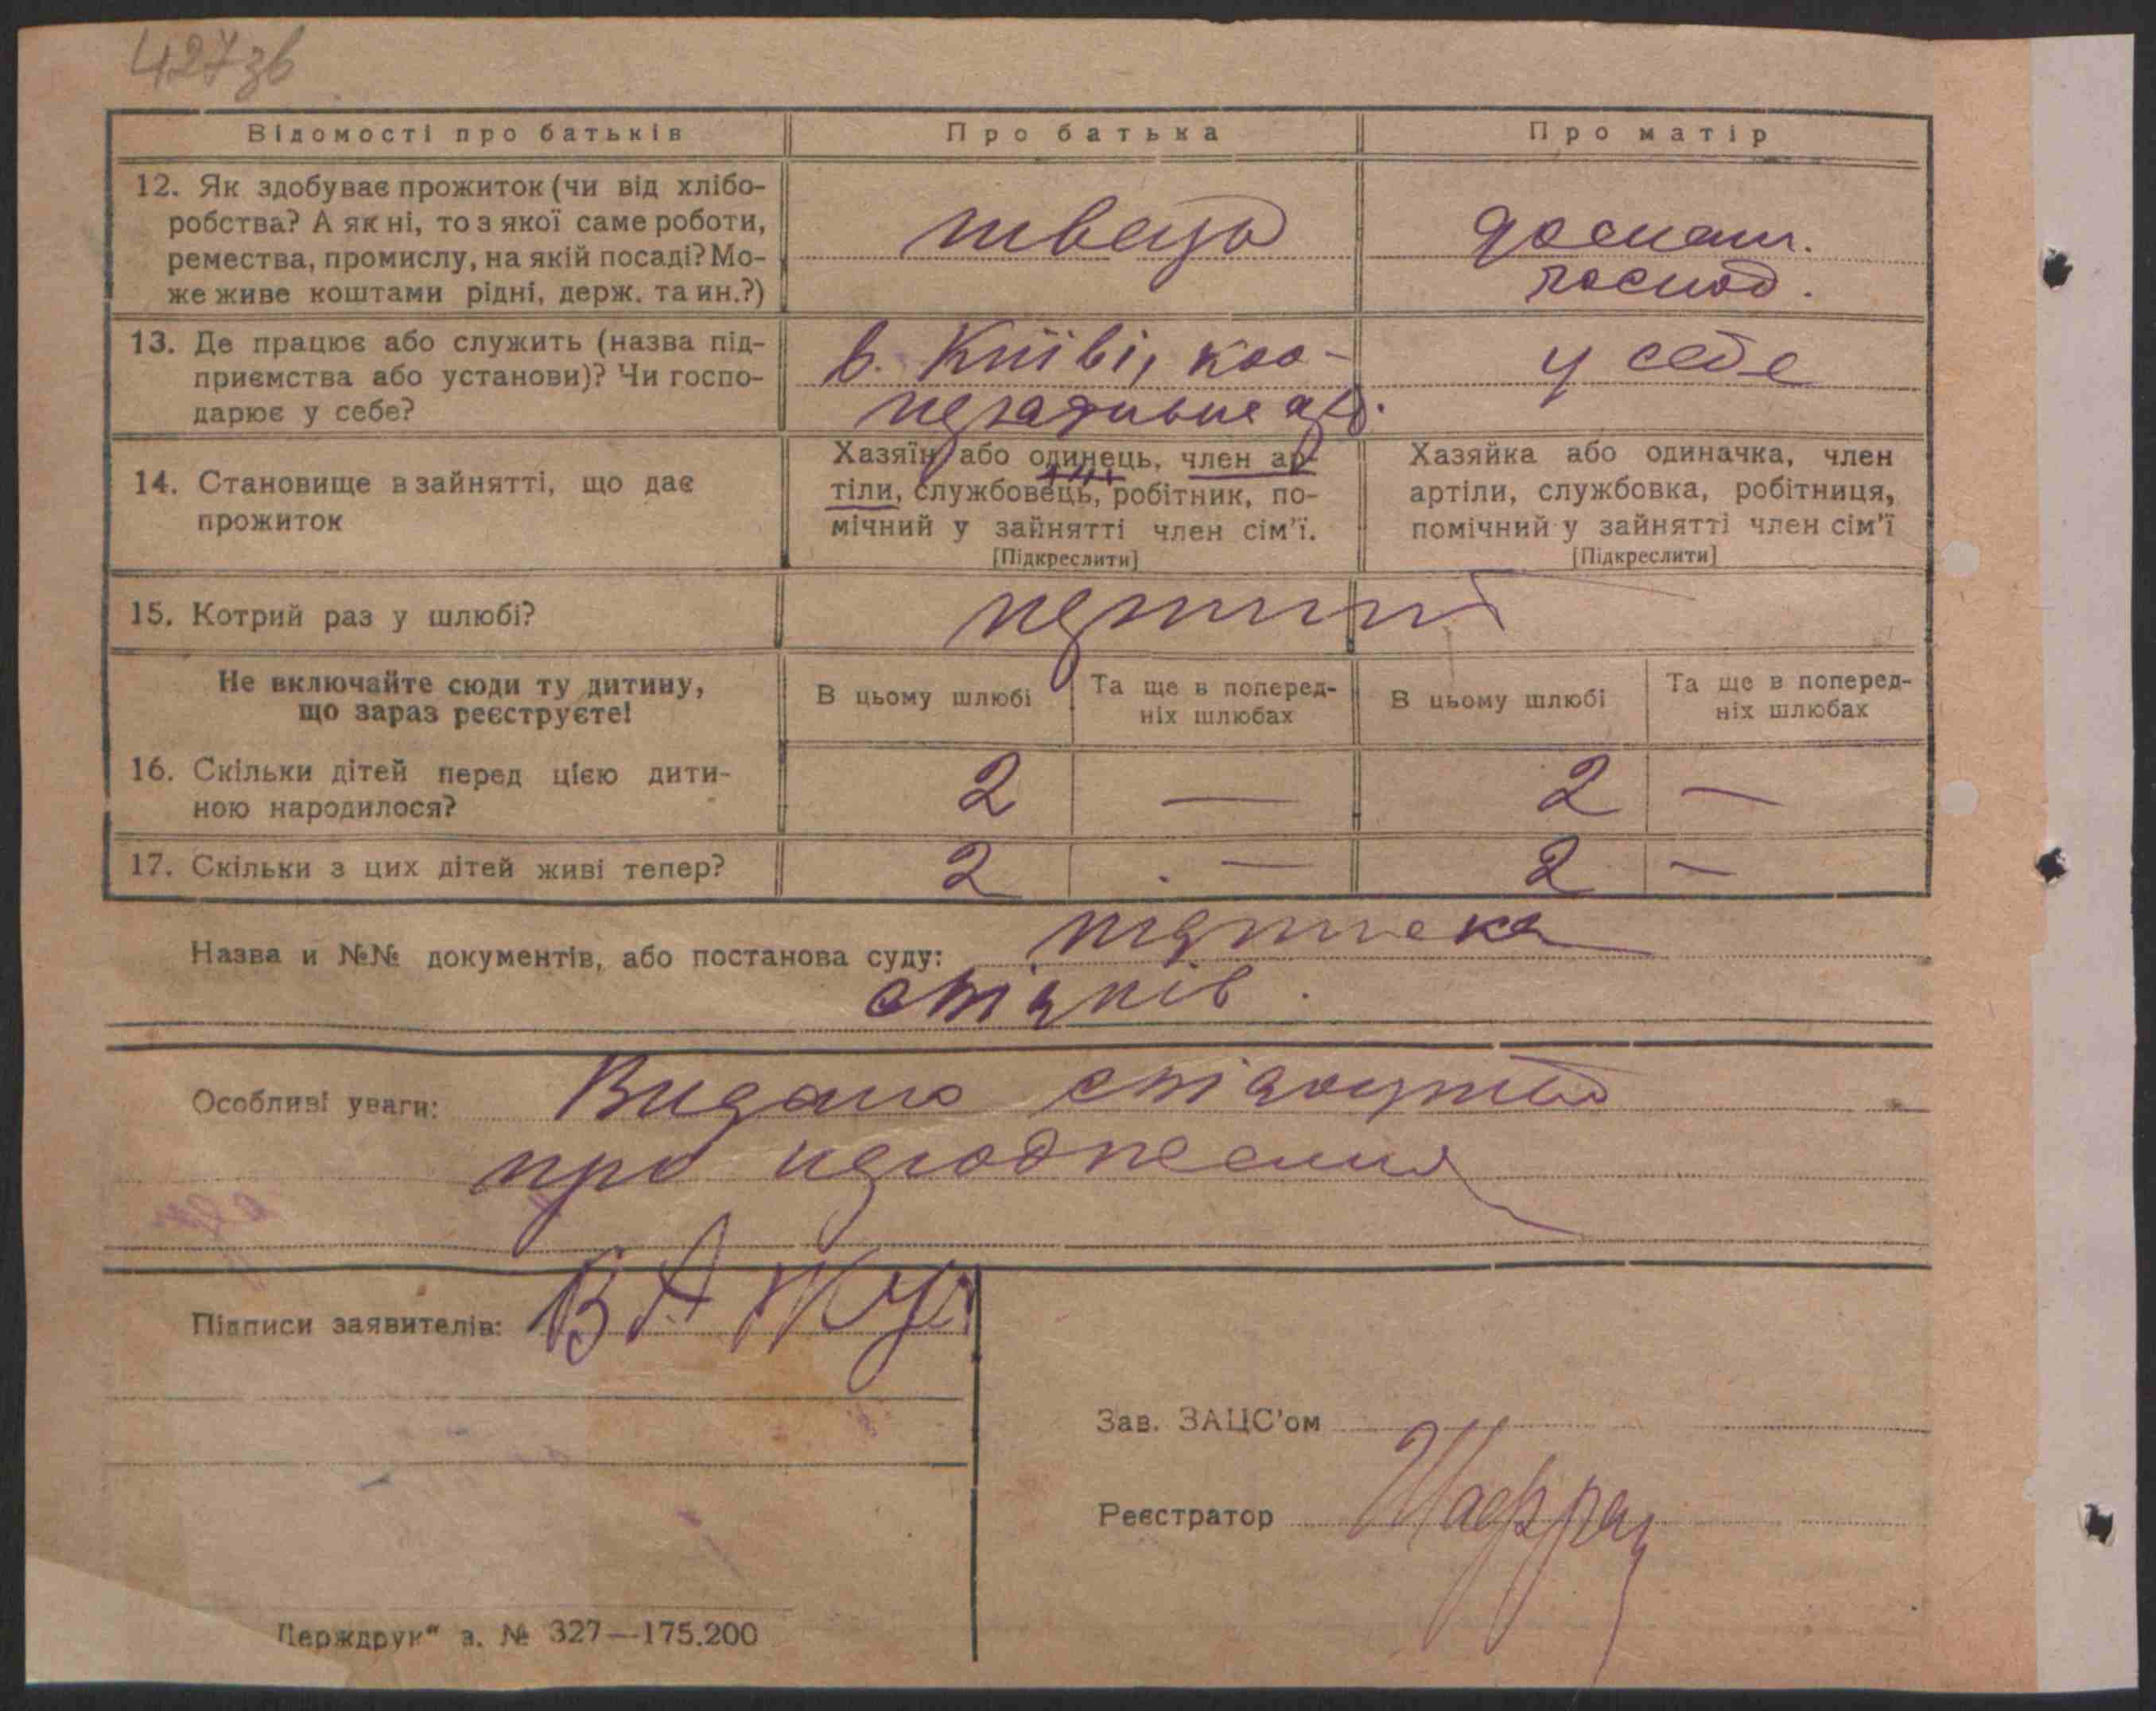 427зв
Відомості про батьків
Про батька
Про матір
12. Як здобуває прожиток (чи від хлібо-
робства? А як ні, то з якої саме роботи,
ремества, промислу, на якій посаді? Мо-
же живе коштами рідні, держ. та ин.?)
швець
домаш.
господ.
13. Де працює або служить (назва під-
приємства або установи)? Чи госпо-
дарює у себе?
в. Київі, коо-
перативне
у себе
14. Становище в зайнятті, що дає
прожиток
Хазяїн або одинець, член ар-
тіли, службовець, робітник, по-
мічний у зайнятті член сім'ї.
[Підкреслити]
Хазяйка або одиначка, член
артіли, службовка, робітниця,
помічний у зайнятті член сім'ї
[Підкреслити]
15. Котрий раз у шлюбі?
перший
Не включайте сюди ту дитину,
що зараз реєструєте!
В цьому шлюбі
Та ще в поперед-
ніх шлюбах
В цьому шлюбі
Та ще в поперед-
ніх шлюбах
16. Скільки дітей перед цією дити-
ною народилося?
2 — 2 —
17. Скільки з цих дітей живі тепер?
2 — 2 —
Назва и №№ документів, або постанова суду: підписка
свідків.
Особливі уваги: Видано свідоцтво
про народження
Підписи заявителів:
Зав. ЗАЦС'ом
Реєстратор
Держдрук“ з. № 327—175.200